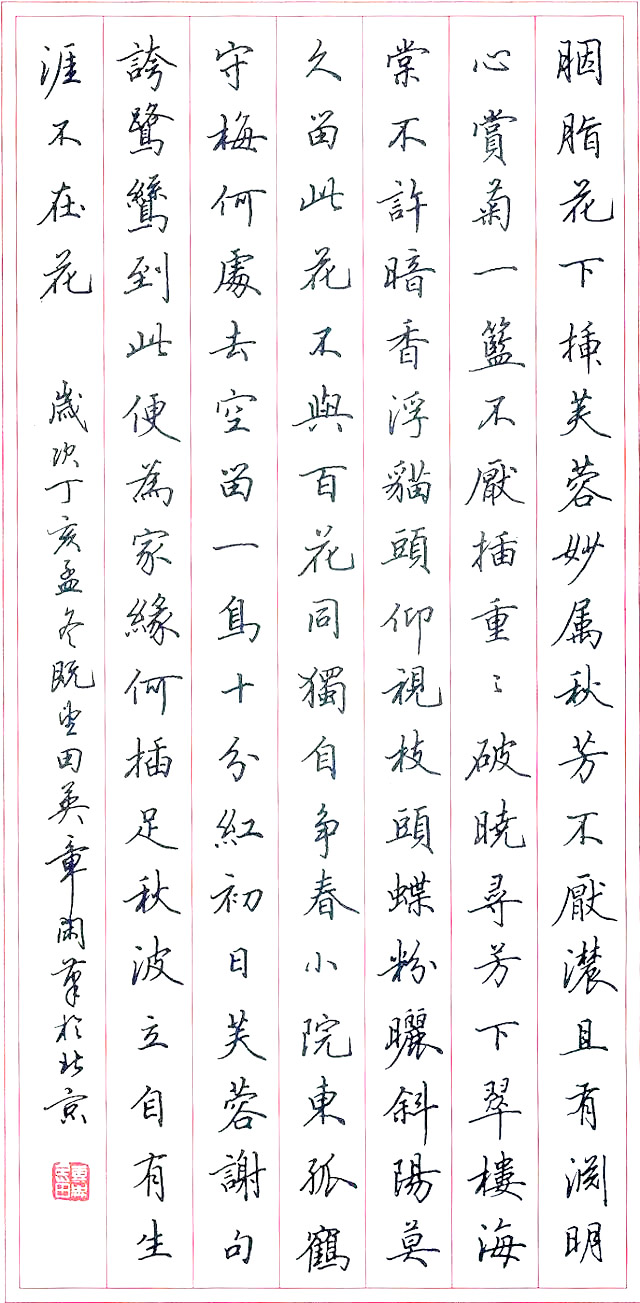 胭脂花下插芙蓉妙属秋芳不厭濃且有渕明
心賞菊一籃不厭插重〻破曉尋芳下翠樓海
棠不許暗香浮貓頭仰視枝頭蝶粉曬斜陽莫
久留此花不與百花同獨自爭春小院東孤鶴
守梅何處去空留一鳥十分紅初日芙蓉謝句
誇鷺鷥到此便為家緣何插足秋波立自有生
涯不在花
歲次丁亥孟冬既望田英章閑筆於北京